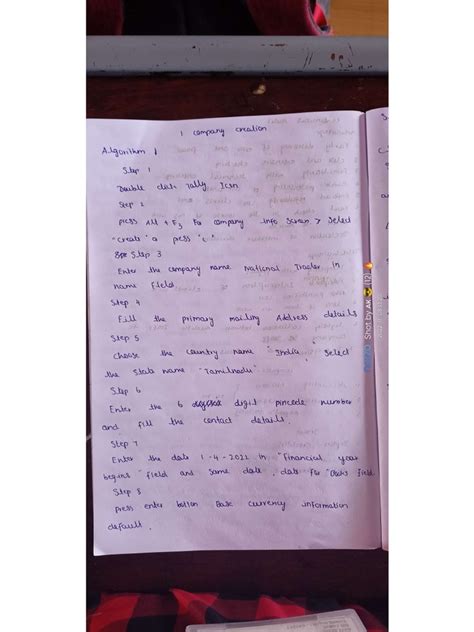 1 company creation
Algorithm 1
Step 1
Double click Tally Icon
Step 2
press Alt + F3 For company info Screen > Select
"create" press "c"
Step 3
Enter the company name National Trader in
name Field
Step 4
Fill the primary mailing Address details
Step 5
Choose the Country name "India, Select
the State name "Tamilnadu"
Step 6
Enter the 6 digit pincode number
and fill the contact details.
Step 7
Enter the date 1-4-2021 in "Financial year
begins" Field and Same date. date For "Books Field
Step 8
press enter button Base currency information
default.
Shot by AK